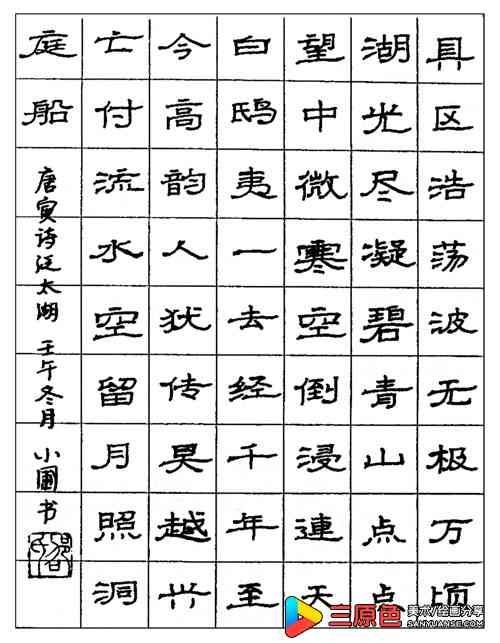 具区浩荡波无极万顷
湖光尽凝碧青山点点
望中微寒空倒浸連天
白鸱夷一去经千年至
今高韵人犹传吴越兴
亡付流水空留月照洞
庭船
唐寅诗泛太湖 壬午冬月 小圃书
三原色
美术/绘画分享
SANYUANSE.COM